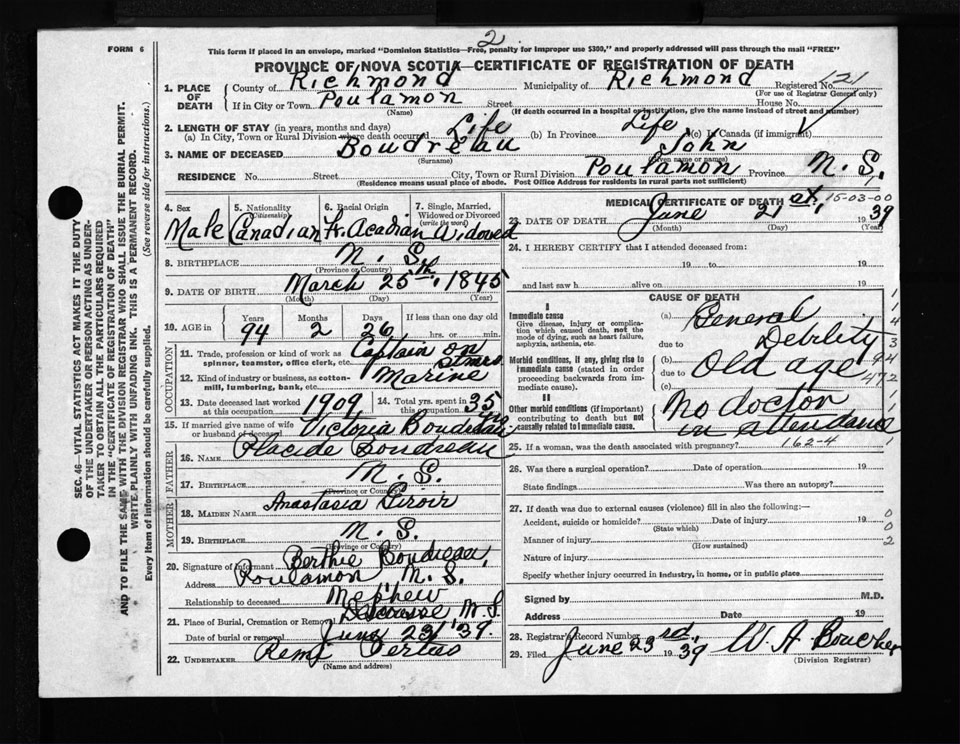 FORM 6
2
This form if placed in an envelope, marked "Dominion Statistics—Free, penalty for improper use $300," and properly addressed will pass through the mail "FREE"
PROVINCE OF NOVA SCOTIA—CERTIFICATE OF REGISTRATION OF DEATH
1. PLACE OF DEATH County of Richmond Municipality of Richmond Registered No. 121
(For use of Registrar General only)
If in City or Town Poulamon Street House No.
(Name) (If death occurred in a hospital or institution, give the name instead of street and number)
2. LENGTH OF STAY (in years, months and days)
(a) In City, Town or Rural Division where death occurred Life (b) In Province Life (c) In Canada (if immigrant)
3. NAME OF DECEASED Boudreau John
(Surname) (Given name or names)
RESIDENCE No. Street City, Town or Rural Division Poulamon Province N. S.
(Residence means usual place of abode. Post Office Address for residents in rural parts not sufficient)
4. Sex 5. Nationality (Citizenship) 6. Racial Origin 7. Single, Married, Widowed or Divorced (write the word)
Male Canadian Fr. Acadian Widowed
8. BIRTHPLACE N. S.
(Province or Country)
9. DATE OF BIRTH March 25th, 1845
(Month) (Day) (Year)
10. AGE in Years Months Days If less than one day old
94 2 26 hrs. or min.
OCCUPATION
11. Trade, profession or kind of work as spinner, teamster, office clerk, etc. Captain on
12. Kind of industry or business, as cotton-mill, lumbering, bank, etc. Marine
13. Date deceased last worked at this occupation 1909 14. Total yrs. spent in this occupation 35
15. If married give name of wife or husband of deceased Victoria Boudreau
FATHER
16. NAME Placide Boudreau
17. BIRTHPLACE N. S.
(Province or Country)
MOTHER
18. MAIDEN NAME Anastasia
19. BIRTHPLACE N. S.
(Province or Country)
20. Signature of Informant Berthie Boudreau,
Address Poulamon N. S.
Relationship to deceased Nephew
21. Place of Burial, Cremation or Removal N. S.
Date of burial or removal June 23/'39.
22. UNDERTAKER Remi
(Name and address)
MEDICAL CERTIFICATE OF DEATH
15-03-00
23. DATE OF DEATH June 21st, 1939
(Month) (Day) (Year)
24. I HEREBY CERTIFY that I attended deceased from:
19 to 19
and last saw h alive on 19
CAUSE OF DEATH
I
Immediate cause
Give disease, injury or complication which caused death, not the mode of dying, such as heart failure, asphyxia, asthenia, etc.
(a) General
due to Debility
Morbid conditions, if any, giving rise to immediate cause (stated in order proceeding backwards from immediate cause).
(b) Old age
due to
(c)
II
Other morbid conditions (if important) contributing to death but not causally related to immediate cause.
No doctor
in attendance
25. If a woman, was the death associated with pregnancy? 162-4
26. Was there a surgical operation? Date of operation 19
State findings Was there an autopsy?
27. If death was due to external causes (violence) fill in also the following:—
Accident, suicide or homicide? Date of injury 19
(State which)
Manner of injury
(How sustained)
Nature of injury
Specify whether injury occurred in industry, in home, or in public place
Signed by M.D.
Address Date 19
28. Registrar's Record Number
29. Filed June 23rd, 1939 W. A Boucher
(Division Registrar)
SEC. 46—VITAL STATISTICS ACT MAKES IT THE DUTY OF THE UNDERTAKER OR PERSON ACTING AS UNDERTAKER TO OBTAIN ALL THE PARTICULARS REQUIRED IN THE "CERTIFICATE OF REGISTRATION OF DEATH" AND TO FILE THE SAME WITH THE DIVISION REGISTRAR WHO SHALL ISSUE THE BURIAL PERMIT.
WRITE PLAINLY WITH UNFADING INK. THIS IS A PERMANENT RECORD.
Every item of information should be carefully supplied. (See reverse side for instructions.)